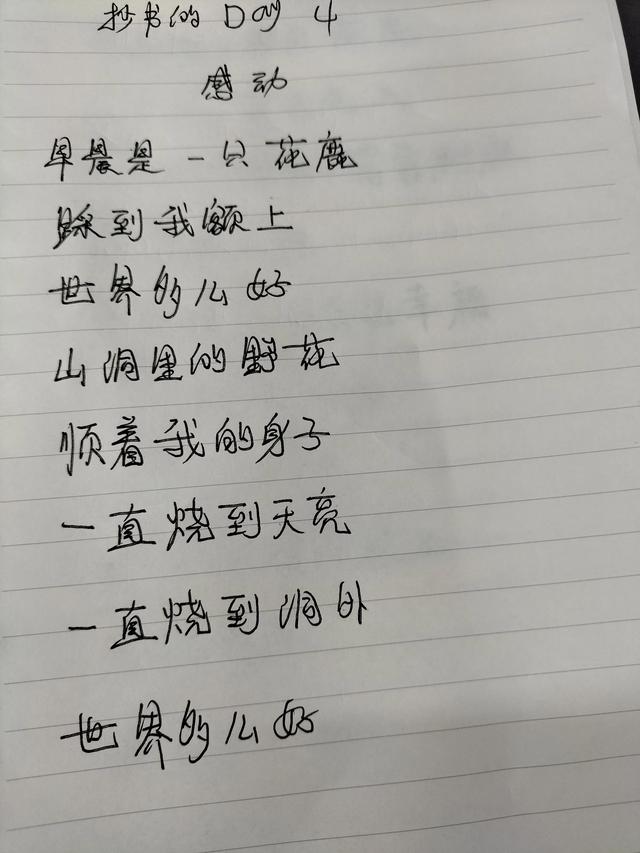 抄书的 Day 4
感动
早晨是一只花鹿
踩到我额上
世界多么好
山洞里的野花
顺着我的身子
一直烧到天亮
一直烧到洞外
世界多么好